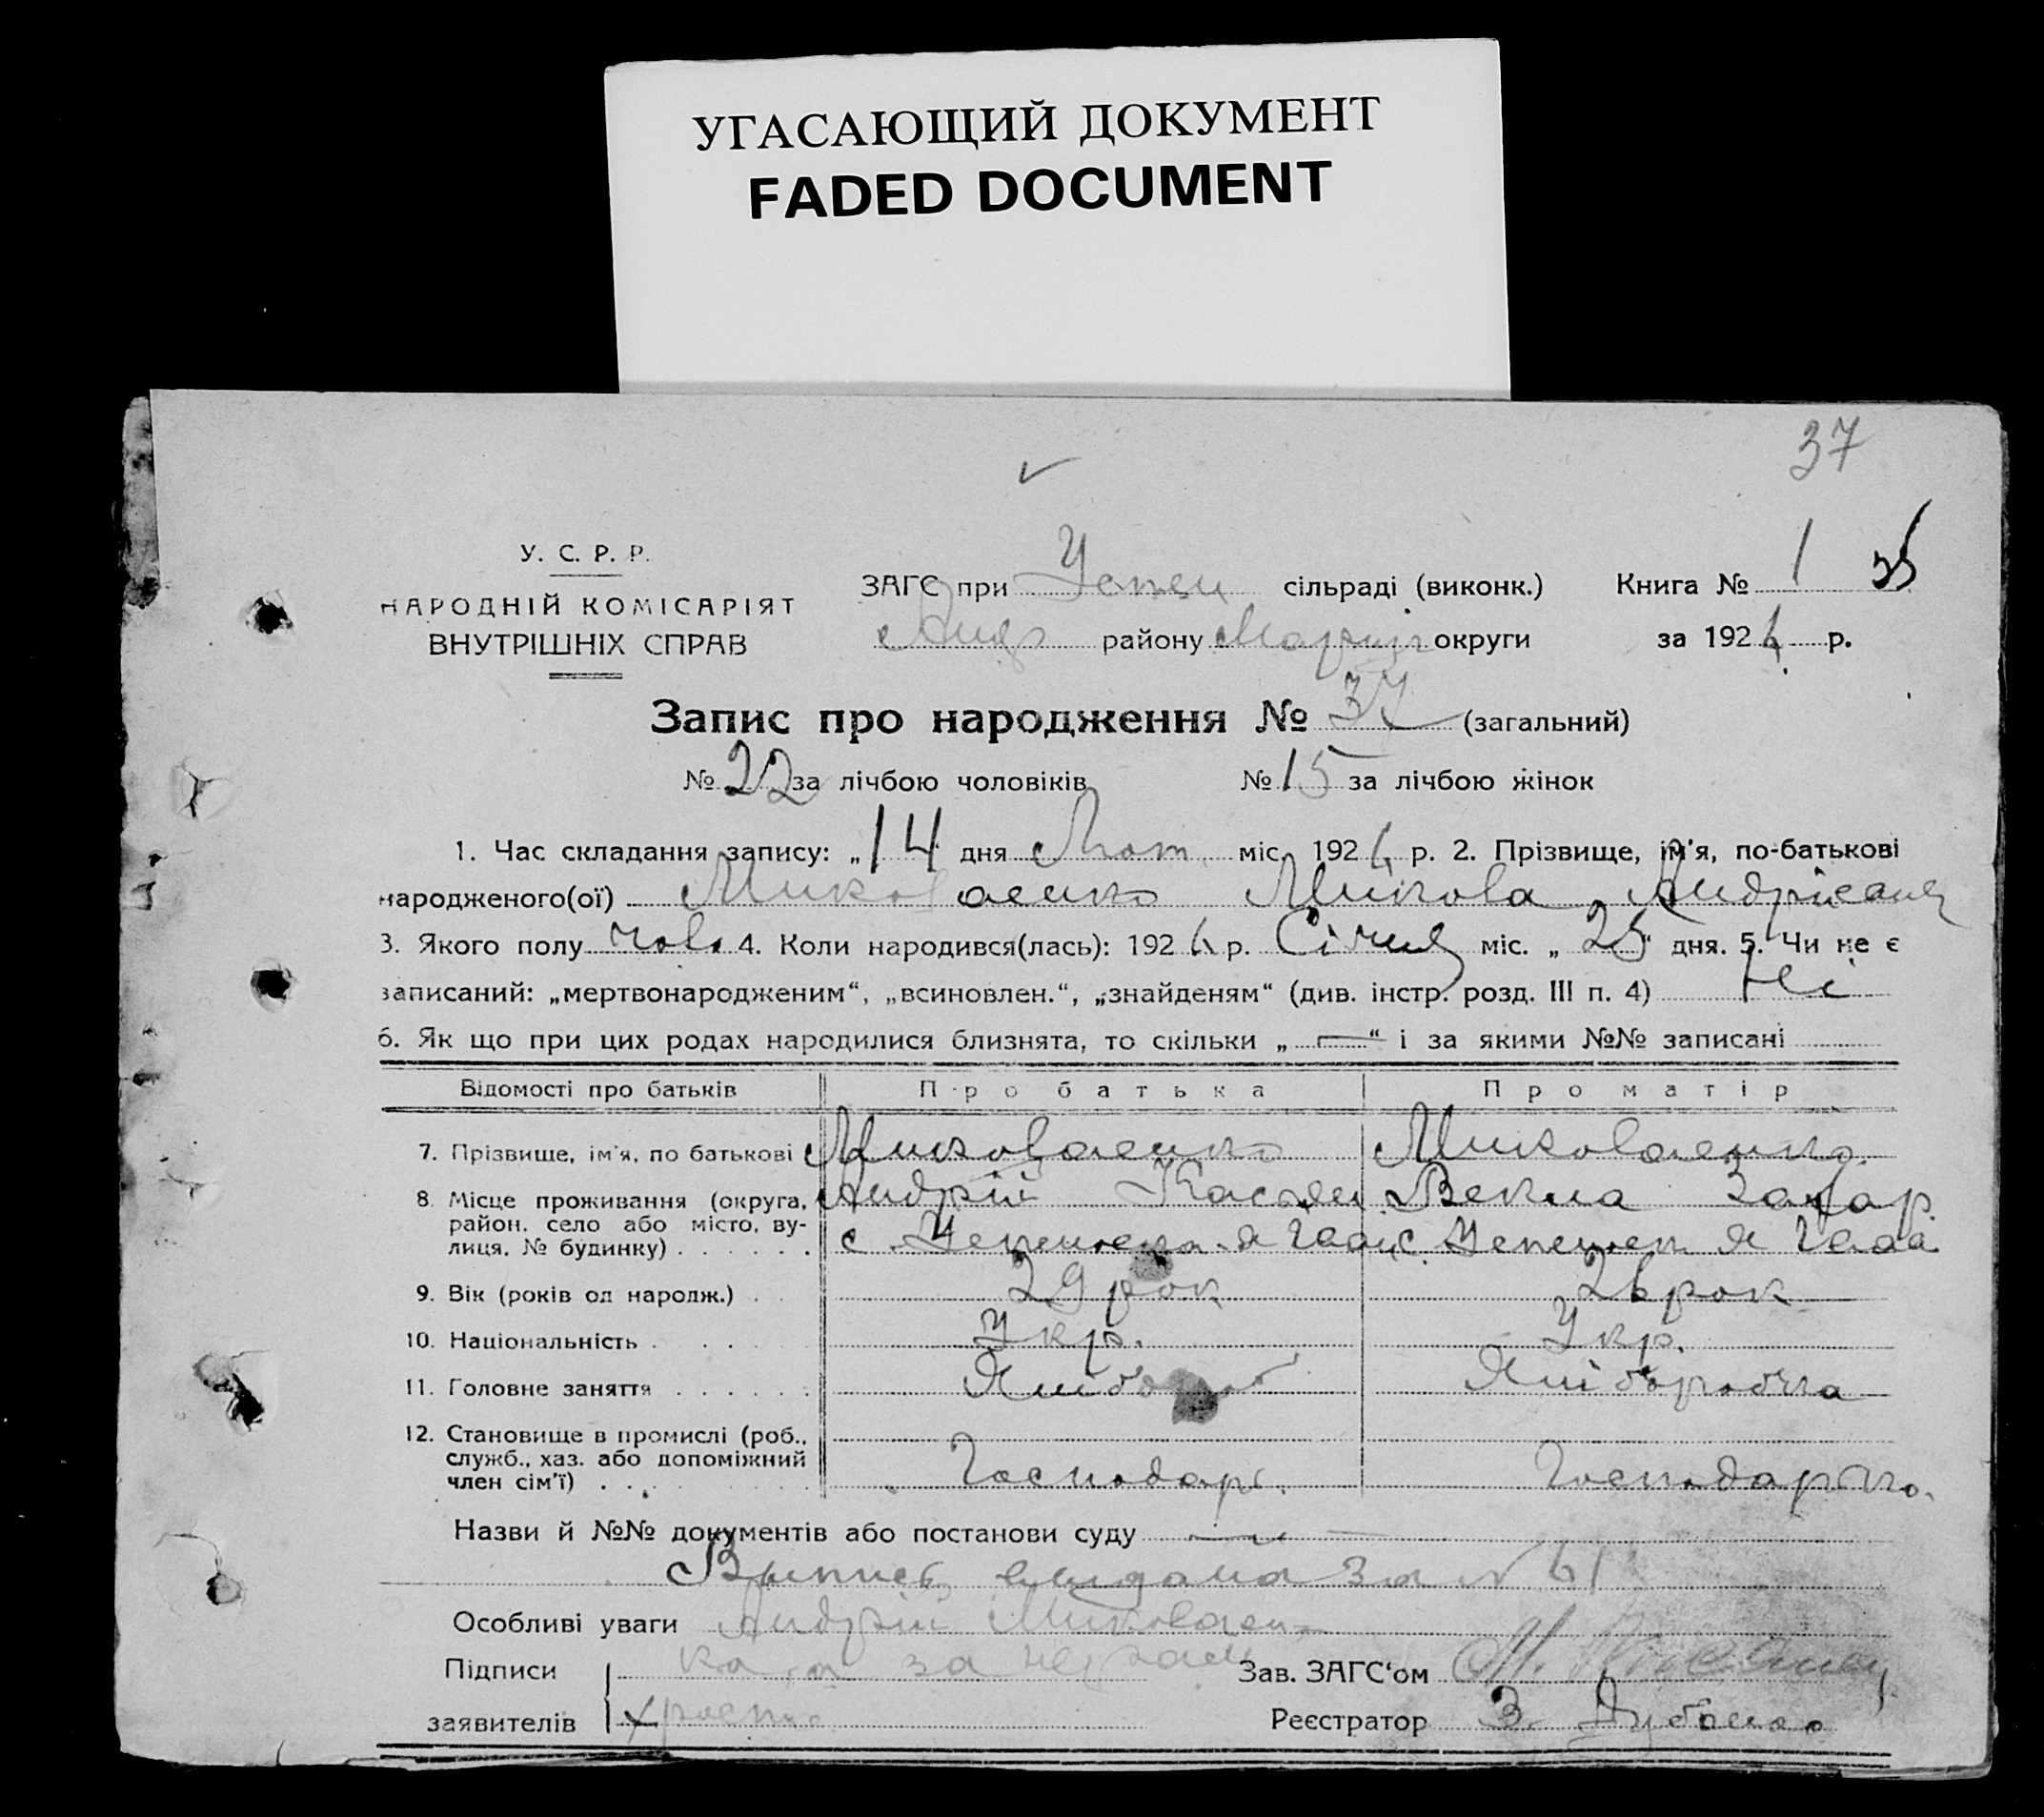 УГАСАЮЩИЙ ДОКУМЕНТ
FADED DOCUMENT
37
У. С. Р. Р.
НАРОДНІЙ КОМІСАРІЯТ
ВНУТРІШНІХ СПРАВ
ЗАГС при сільраді (виконк.) Книга № 1
району округи за 1926 р.
Запис про народження № 37 (загальний)
№ 22 за лічбою чоловіків № 15 за лічбою жінок
1. Час складання запису: „14 дня Лют. міс. 1926 р. 2. Прізвище, ім'я, по-батькові
народженого(ої) Миколаенко Микола
3. Якого полу чол. 4. Коли народився(лась): 1926 р. Січня міс. „25“ дня. 5. Чи не є
записаний: „мертвонародженим“, „всиновлен.“, „знайденям“ (див. інстр. розд. III п. 4) Ні
6. Як що при цих родах народилися близнята, то скільки „—“ і за якими №№ записані
Відомості про батьків Про батька Про матір
7. Прізвище, ім'я, по батькові Миколаенко Миколаенко
8. Місце проживання (округа, Андрій Касьян Векла Захар.
район, село або місто, ву-
лиця, № будинку) с с
9. Вік (років од народж.) 29 рок 26 рок
10. Національність Укр. Укр.
11. Головне заняття Хліборобка
12. Становище в промислі (роб.,
служб., хаз. або допоміжний
член сім'ї) Господарь.
Назви й №№ документів або постанови суду —
Выпись выдана за № 61
Особливі уваги Андрій Миколаен-
Підписи ка а за Зав. ЗАГС'ом
заявителів Реєстратор З.